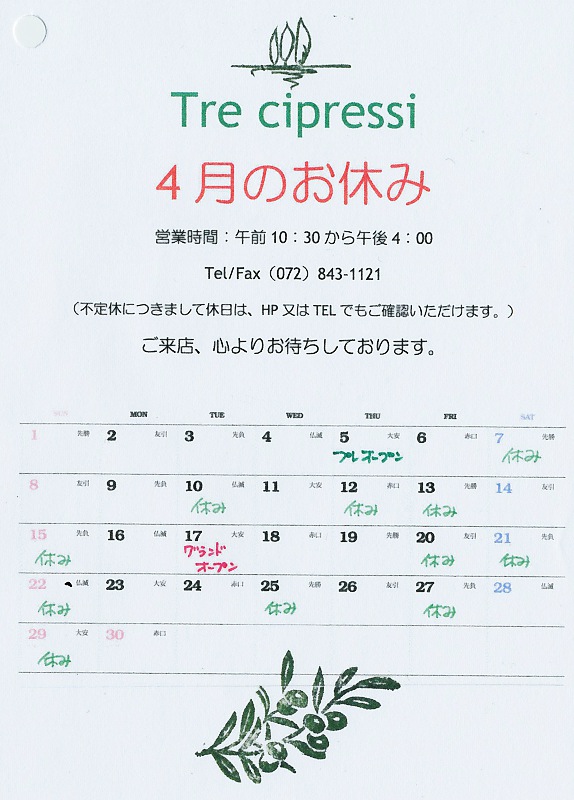 Tre cipressi
4月のお休み
営業時間：午前10：30から午後4：00
Tel/Fax（072）843-1121
（不定休につきまして休日は、HP又はTELでもご確認いただけます。）
ご来店、心よりお待ちしております。
SUN MON TUE WED THU FRI SAT
1 先勝 2 友引 3 先負 4 仏滅 5 大安 6 赤口 7 先勝
プレオープン 休み
8 友引 9 先負 10 仏滅 11 大安 12 赤口 13 先勝 14 友引
休み 休み 休み
15 先負 16 仏滅 17 大安 18 赤口 19 先勝 20 友引 21 先負
休み グランド 休み 休み
オープン
22 仏滅 23 大安 24 赤口 25 先勝 26 友引 27 先負 28 仏滅
休み 休み 休み
29 大安 30 赤口
休み